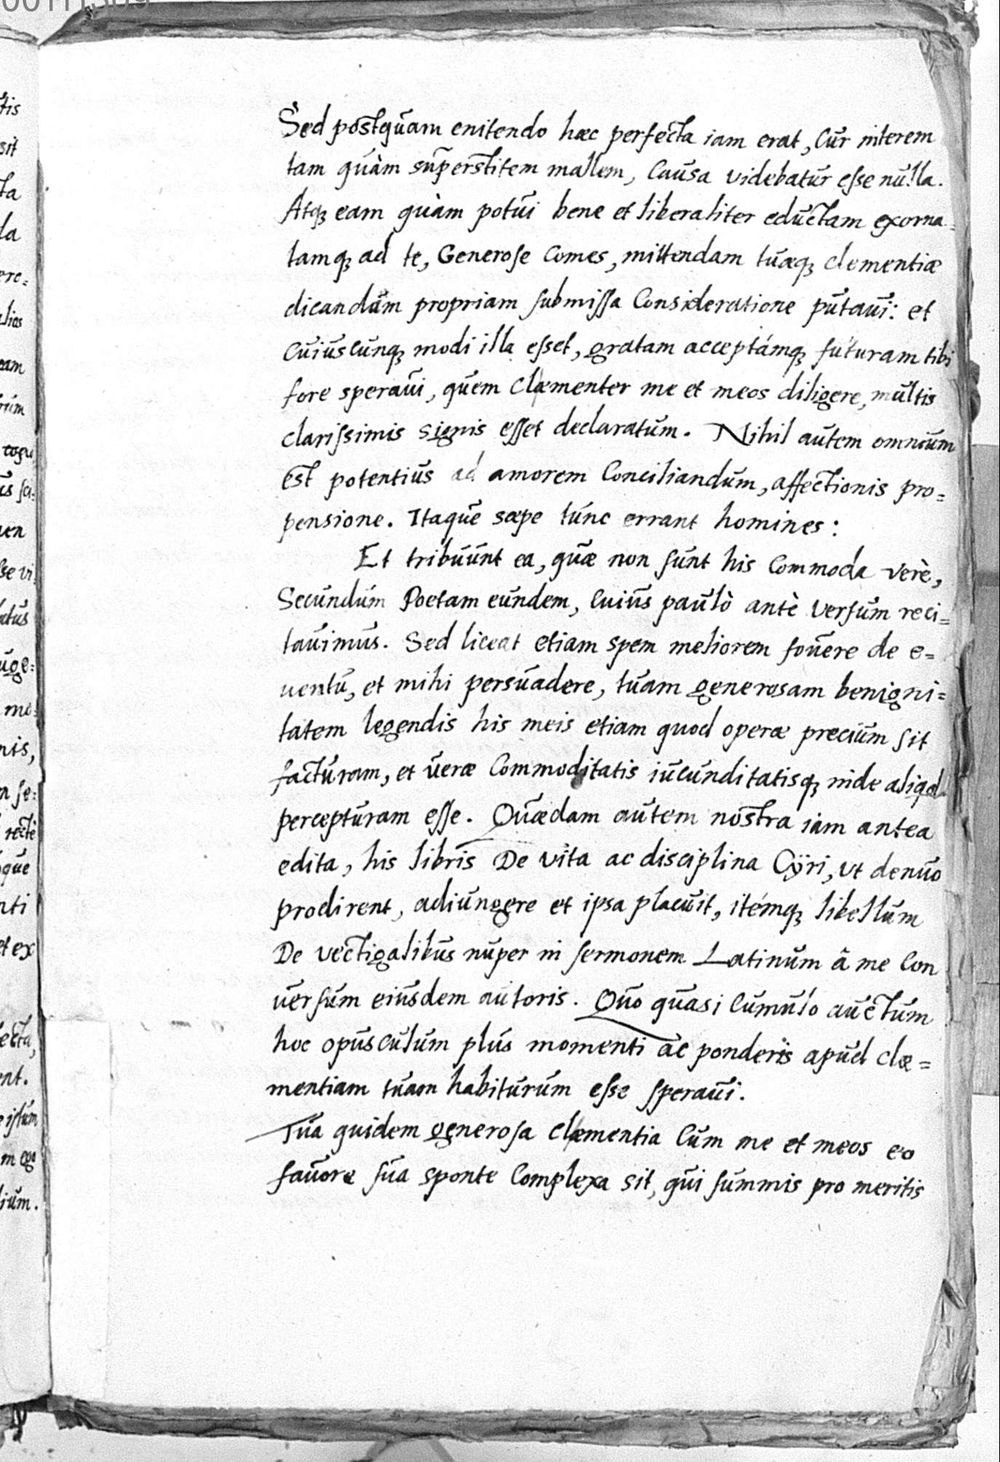 Sed postquam enitendo hæc perfecta iam erat, Cur interem
tam quàm superstitem mallem, Causa videbatur esse nulla.
Atq; eam quàm potui bene et liberaliter eductam exorna-
tamq; ad te, Generose Comes, mittendam tuæq; clementiæ
dicandam propriam submissa Consideratione putaui: et
Cuiuscunq; modi illa esset, gratam acceptámq; futuram tibi
fore speraui, quem Clæmenter me et meos diligere, multis
clarissimis signis esset declaratum. Nihil autem omnium
est potentius ad amorem Conciliandum, affectionis pro=
pensione. Itaque sæpe tunc errant homines:
Et tribuunt ea, quæ non sunt his Commoda verè,
Secundum Poetam eundem, Cuius paulò antè versum reci=
tauimus. Sed liceat etiam spem meliorem fouere de e=
uentu, et mihi persuadere, tuam generosam benigni=
tatem legendis his meis etiam quod operæ precium sit
facturam, et veræ Commoditatis iucunditatisq; inde aliqd
percepturam esse. Quædam autem nostra iam antea
edita, his libris De vita ac disciplina Cÿri, ut denuo
prodirent, adiungere et ipsa placuit, itémq; libellum
De vectigalibus nuper in sermonem Latinum â me Con
uersum eiusdem autoris. Quo quasi Cumulo auctum
hoc opusculum plus momenti ac ponderis apud clæ=
mentiam tuam habiturum esse speraui.
Tua quidem generosa Clæmentia Cum me et meos eo
fauore sua sponte Complexa sit, qui summis pro meritis
00111309
tis
sit
ta
la
ere:
alias
eam
cogu
us sci:
uen
se vi
atus
uge:
me:
nis,
m se:
recte
que
nti
et ex
fecta,
ent.
e istum
m ego
lium.